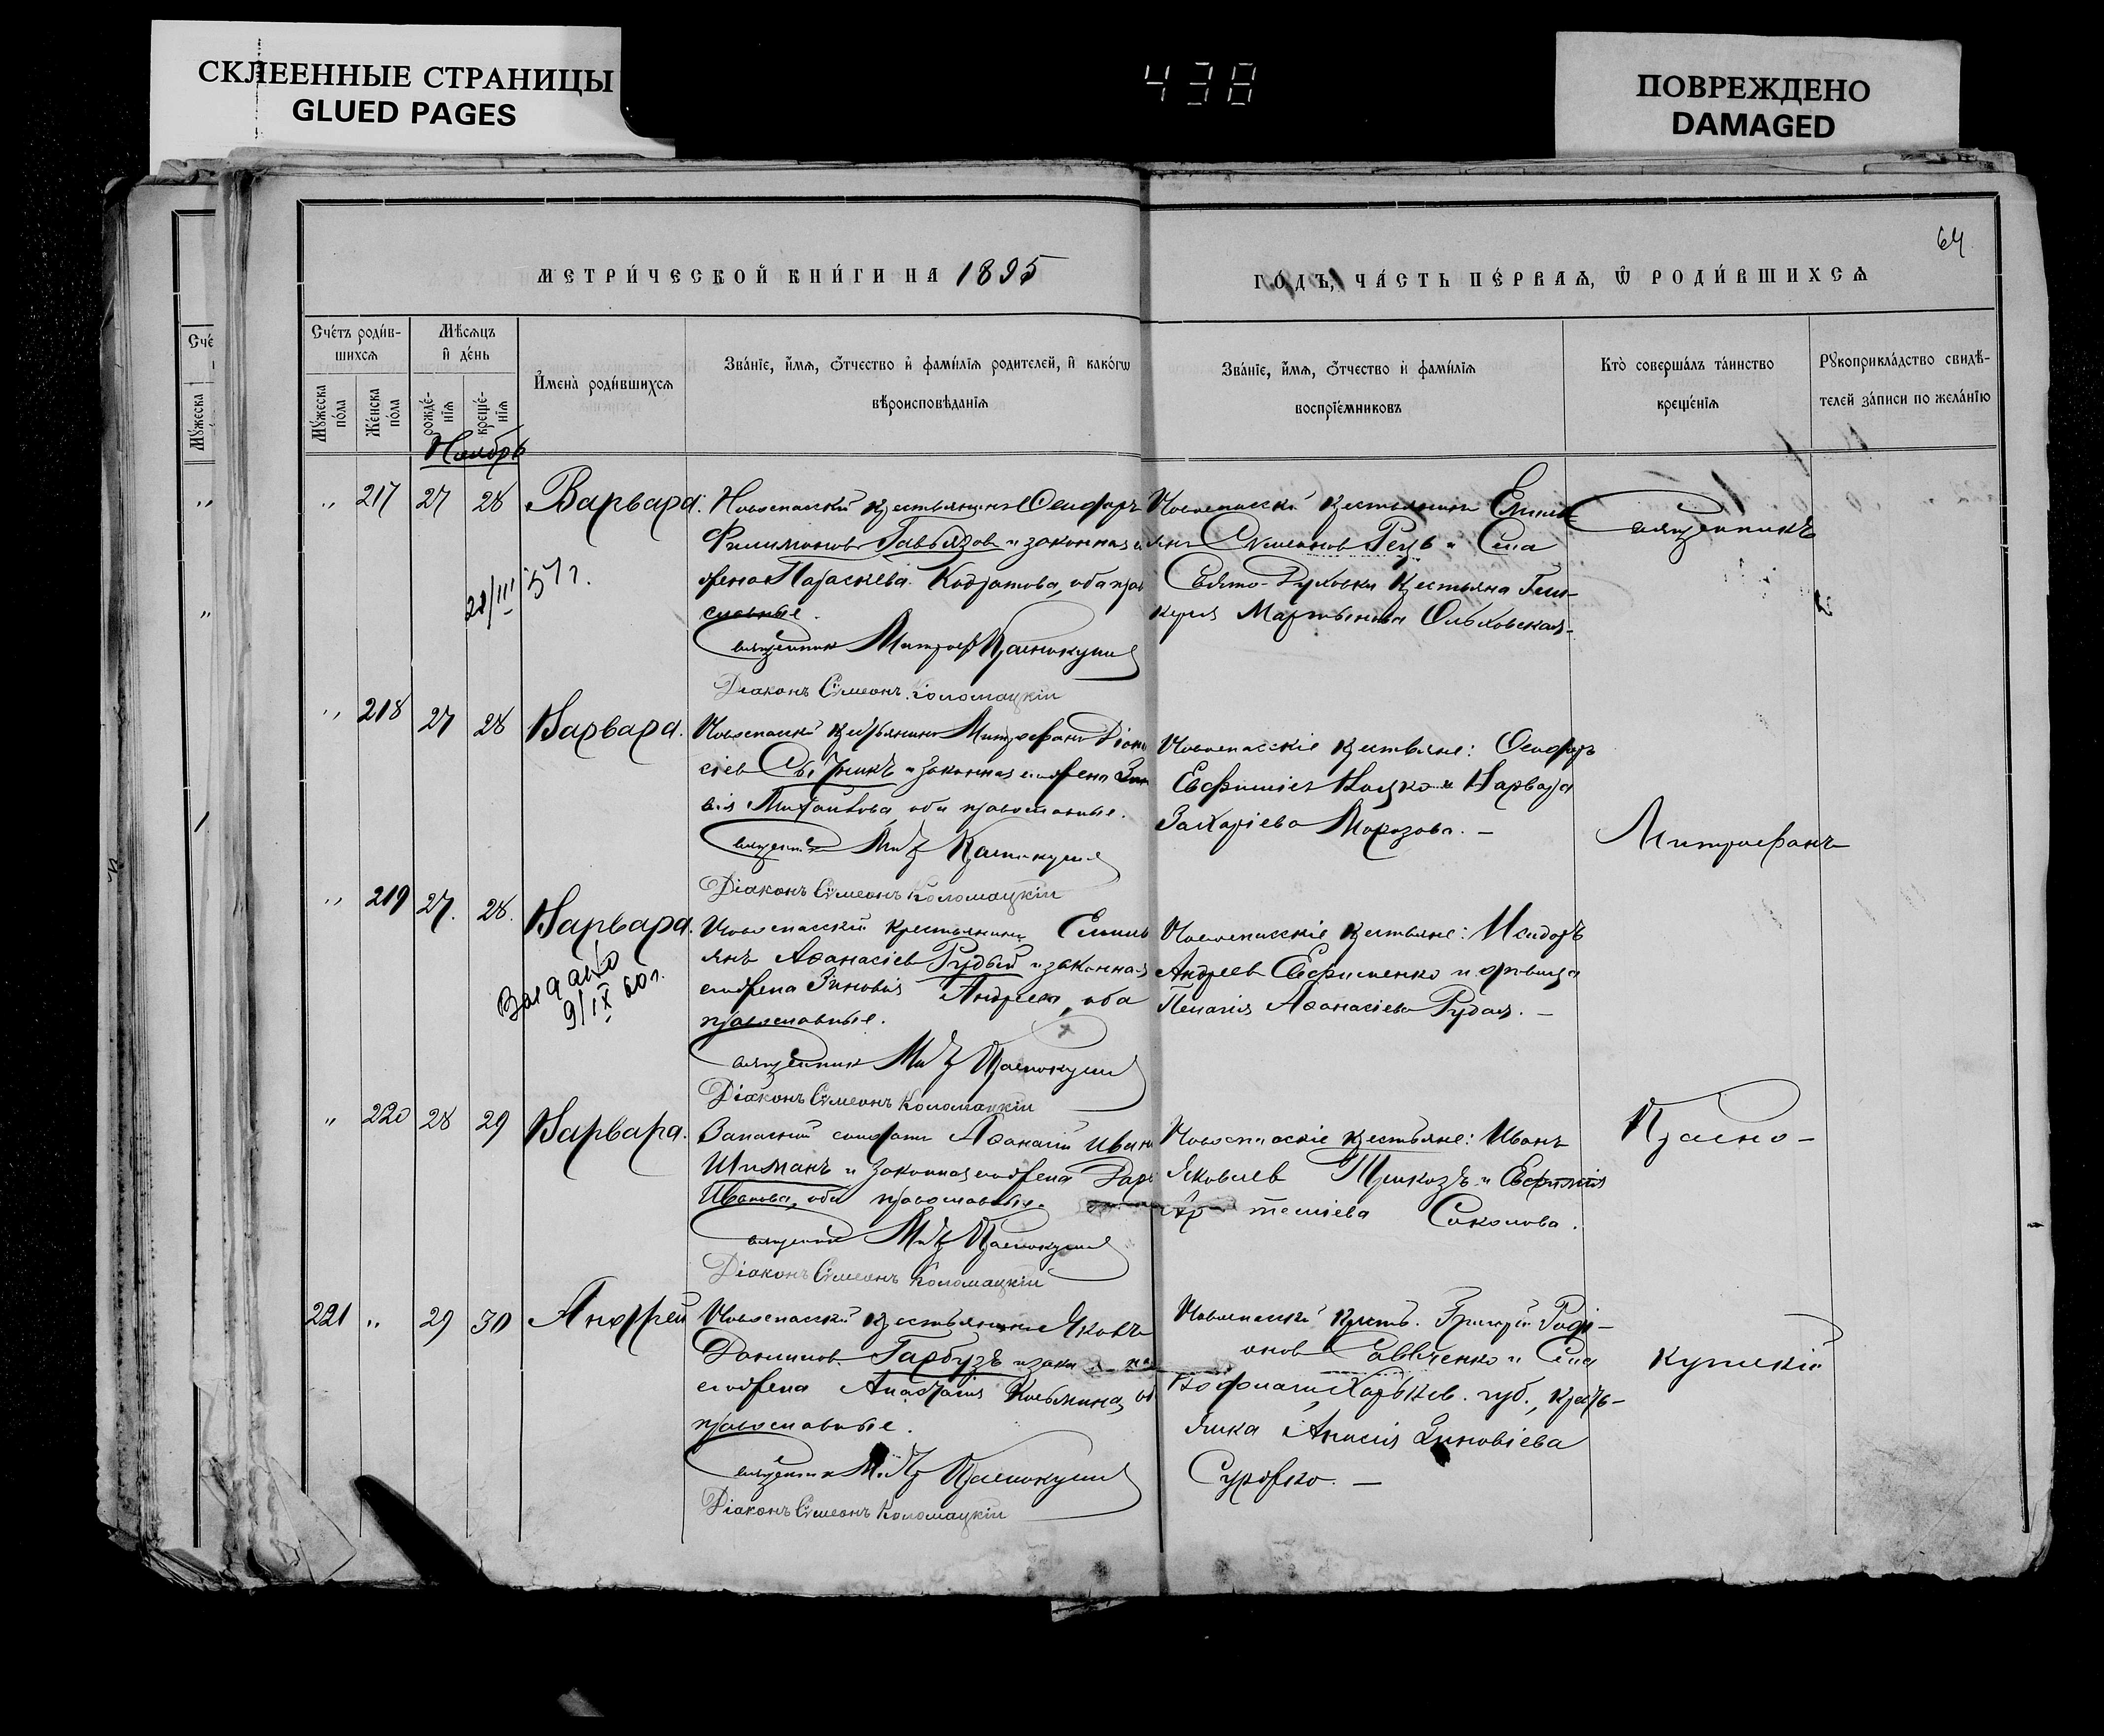 СКЛЕЕННЫЕ СТРАНИЦЫ
GLUED PAGES
438
ПОВРЕЖДЕНО
DAMAGED
64
МЕТРИ́ЧЕСКОЙ КНИ́ГИ НА 1895
ГО́ДЪ, ЧА́СТЬ ПЕ́РВАѦ, Ѡ҆ РОДИ́ВШИХСѦ
Сче
Мꙋжеска
Сче́тъ роди́в-
шихсѧ
Мꙋ́жеска по́ла
Же́нска по́ла
Мѣ́сѧцъ
и҆ де́нь
рожде́-нїѧ
креще́-нїѧ
И҆мена̀ роди́вшихсѧ
Зва́нїе, и҆́мѧ, ѻ҆́тчество и҆ фами́лїѧ родителей, и҆ како́гѡ
вѣроисповѣ́данїѧ
Зва́нїе, и҆́мѧ, ѻ҆́тчество и҆ фами́лїѧ
воспрїе́мниковъ
Кто̀ соверша́лъ та́инство
креще́нїѧ
Рꙋкоприкла́дство свидѣ́-
телей за́писи по жела́нїю
Ноябрь
" 217 27 28 Варвара.
Новоспасскій крестьянинъ Феодоръ
Филимоновъ и законная
жена Параскева Кодратова, оба право
славные.
Священник Митроф Краснокутскій
Діаконъ Сѵмеонъ Коломацкій
Новоспасскій крестьянинъ Емиль
янъ Сѵмеонов и Села
Свято-Духовки крестьянка
Мартынова Ольховская-
Священникъ
28/III 57 г.
" 218 27 28 Варвара.
Новоспасскій крестьянинъ Митрофанъ Діони
сіев Сытникъ и законная его жена Зино
вія Михайлова, оба православные.
Священник Мит Краснокутскій
Діаконъ Сѵмеонъ Коломацкій
Новоспасскіе крестьяне: Феодоръ
Евфиміев и Варвара
Захаріева Морозова. –
Митрофанъ
" 219 27. 28. Варвара.
Новоспасскій крестьянинъ Емиль
янъ Аѳанасіев Рудый и законная
его жена Зиновія Андреева, оба
православные.
Священник Мит Краснокутскій
Діаконъ Сѵмеонъ Коломацкій
Новоспасскіе крестьяне: Исидоръ
Андреев Евфименко и девица
Пелагія Аѳанасіева Рудая. –
9/IX 60 г.
" 220 28 29 Варвара.
Запасный солдатъ Аѳанасій Иванов
Шиманъ и законная его жена Дарія
Иванова, оба православные.
Священник Мит Краснокутскій
Діаконъ Сѵмеонъ Коломацкій
Новоспасскіе крестьяне: Иванъ
Яковлев и Евфимія
Артеміева Соколова.
Красно-
221 " 29 30 Андрей
Новоспасскій крестьянинъ Яковъ
Данилов Гарбузъ и законная
его жена Анастасія Козьмина, об
православные.
Священник Мит Краснокутскій
Діаконъ Сѵмеонъ Коломацкій
Новоспасскій крест. Григорій Роді-
онов Савченко и Села
Харьков. губ., кресть-
янка Анисія Зиновіева
Сурожко. –
кутскій